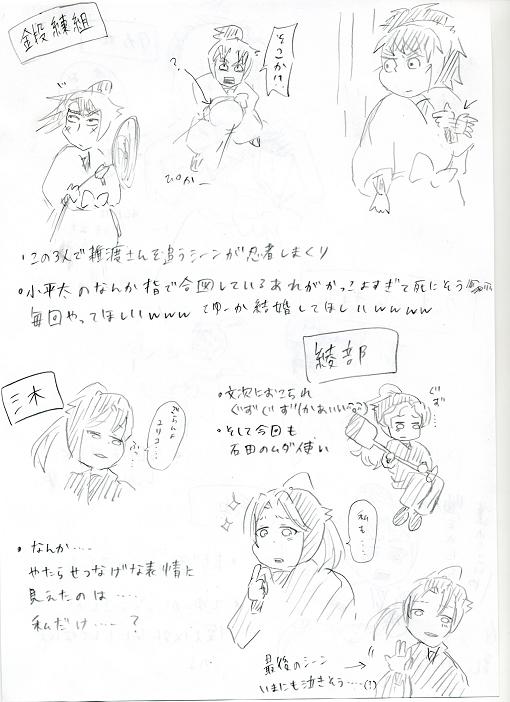 金段練組
そこか!!
?
ぴゅか—
・この3人で雑渡さんを追うシーンが忍者しまくり
・小平太のなんか指で合図しているあれがかっこよすぎて死にそう
毎回やってほしいwww てゆーか結婚してほしいwwww
綾部
・文次におこられ
ぐずぐず(かあいい
・そして今回も
石田のムダ使い
ぐず…
三木
ごらんよ
ユリコ…
ふっ…
私も……
・なんか……
やたらせつなげな表情に
見えたのは……
私だけ……?
最後のシーン →
いまにも泣きそう……(!)